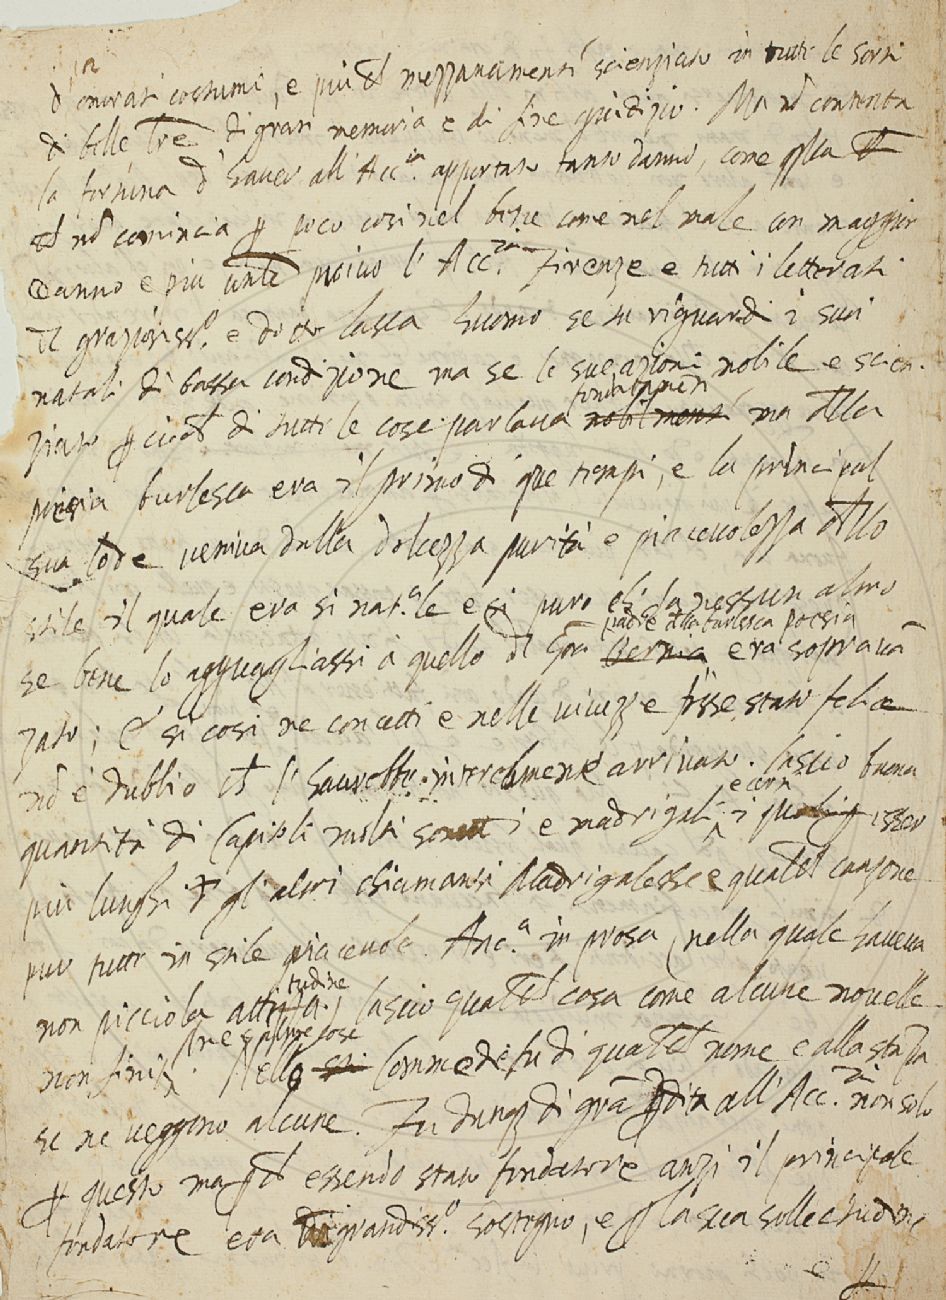 d'onorati costumi, e più ch mezzanamente scienziato in tutte le sorti
di belle lre di gran memoria e di fine giudizio. Ma nō contenta
la fortuna d'haver all'Acc.ia apportato tanto danno, come qlla
ch nō comincia p poco cosi nel bene come nel male con maggior
danno e più privò l'Acc.ia Firenze e tutti i letterati
Il graziosiss.o e dotto Lasca huomo se tu riguardi i suoi
natali di bassa condizione ma se le sue azioni nobile e scien-
ziato p ciò ch di tutte le cose parlava fondatamente nobilmente ma della
poesia burlesca era il primo di que tempi, e la principal
sua lode veniva dalla dolcezza purità e piacevolezza dello
stile il quale era si nat.ale e si puro ch da nessun altro
se bene lo agguagliassi à quello del padre della burlesca poesia Bernia era sopravā
zato; E si così ne concetti e nelle vivezze fusse stato felice
nō è dubbio ch l'haurebbe interamente arrivato. lasciò buona
quantità di Capitoli molti sonetti e madrigali, i quali esser
più lunghi gl'altri chiamansi Madrigalesse e qualch canzone
pur tutte in stile piacevole. Anc.a in prosa, nella quale haveva
non picciola attitudine, lasciò qualch cosa come alcune novelle
non finite. Nelle Commedie fu di qualch nome e alla stāpa
se ne veggono alcune. Fu dunq di grā pdita all'Acc.ia non solo
p questo ma pch essendo stato fondatore anzi il principale
fondatore era di grandiss.o sostegno, e p la sua sollecitudine
e p